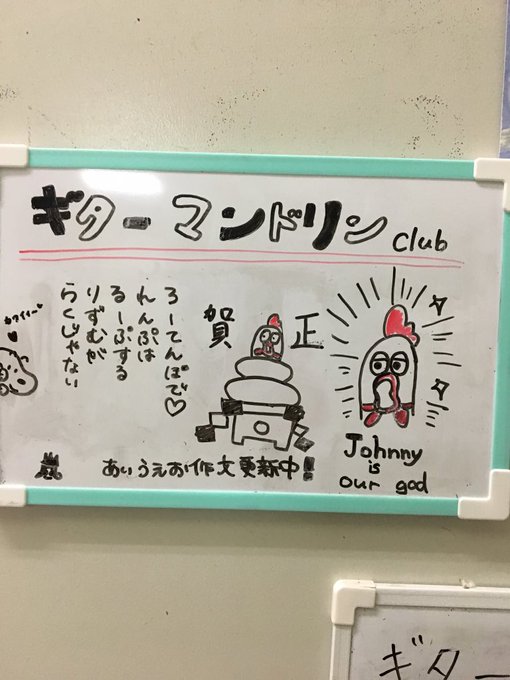 ギターマンドリン club
ろーてんぽで♡
れんぷは
るーぷする
りずむが
らくじゃない
賀正
あいうえお作文更新中!
Johnny
is
our god
ギター